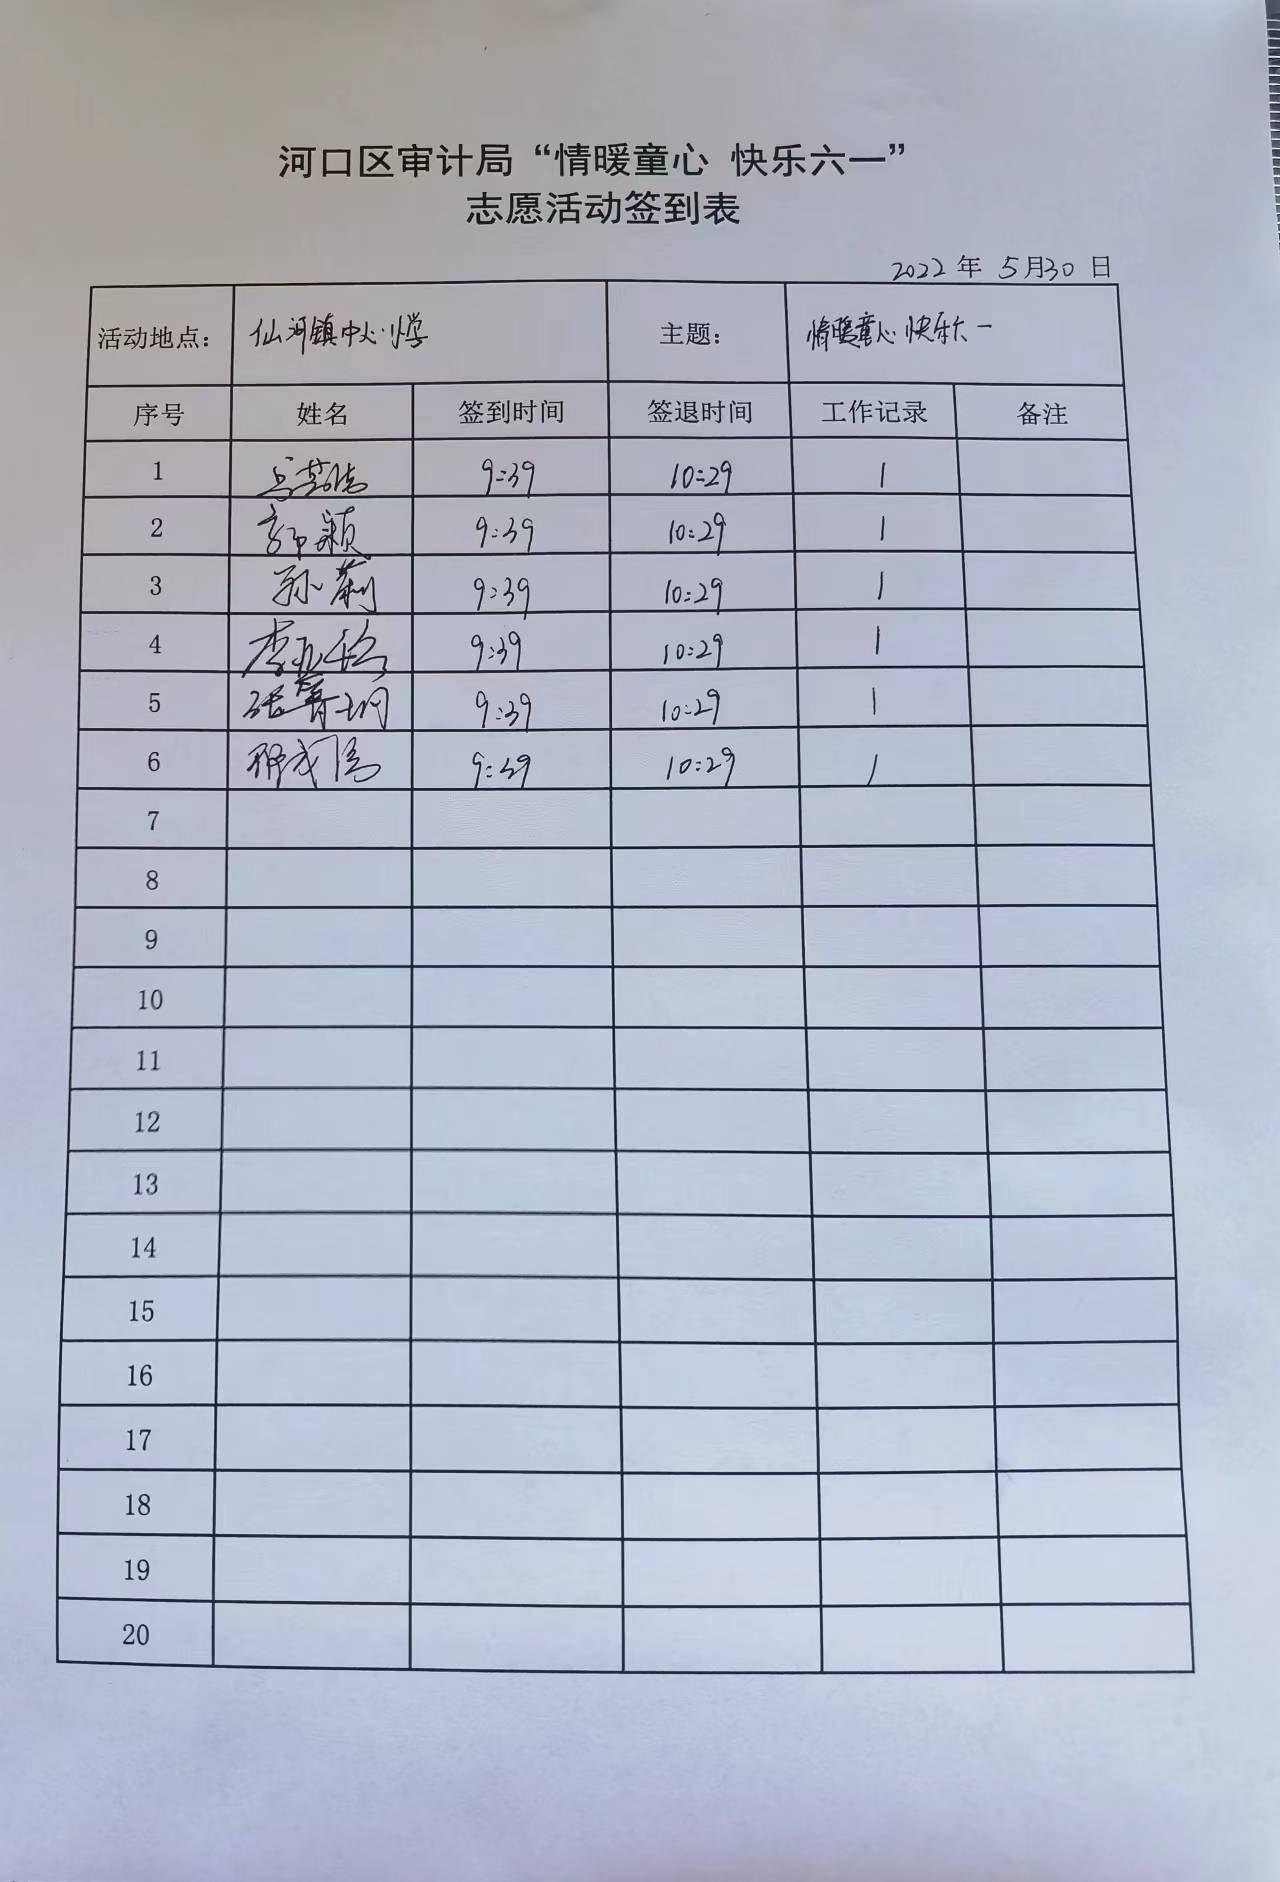 河口区审计局“情暖童心 快乐六一”
志愿活动签到表
2022年 5月30日
活动地点： 仙河镇中心小学 主题： 情暖童心 快乐六一
序号 姓名 签到时间 签退时间 工作记录 备注
1 9:39 10:29 1
2 郭颖 9:39 10:29 1
3 孙莉 9:39 10:29 1
4 9:39 10:29 1
5 9:39 10:29 1
6 9:39 10:29 1
7
8
9
10
11
12
13
14
15
16
17
18
19
20